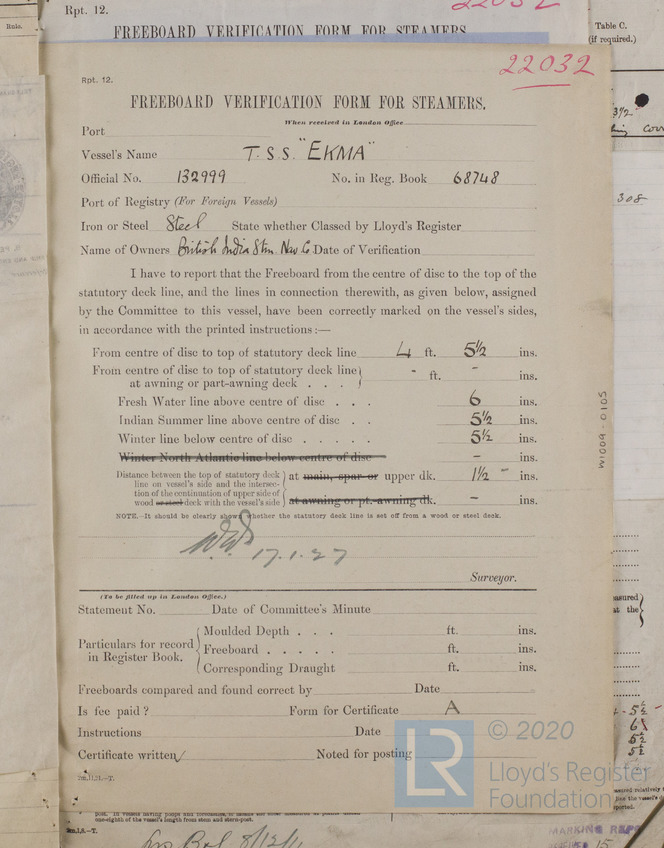 Rpt. 12.
FREEBOARD VERIFICATION FORM FOR STEAMERS.
Rule.
Table C.
(if required.)
22032
Rpt. 12.
FREEBOARD VERIFICATION FORM FOR STEAMERS.
When received in London Office
Port
Vessel's Name T.S.S. "EKMA"
Official No. 132999 No. in Reg. Book 68748
Port of Registry (For Foreign Vessels)
Iron or Steel Steel State whether Classed by Lloyd's Register
Name of Owners British India Stm. Nav. Co. Date of Verification
I have to report that the Freeboard from the centre of disc to the top of the
statutory deck line, and the lines in connection therewith, as given below, assigned
by the Committee to this vessel, have been correctly marked on the vessel's sides,
in accordance with the printed instructions:—
From centre of disc to top of statutory deck line 4 ft. 5½ ins.
From centre of disc to top of statutory deck line
at awning or part-awning deck . . . - ft. - ins.
Fresh Water line above centre of disc . . . 6 ins.
Indian Summer line above centre of disc . . 5½ ins.
Winter line below centre of disc . . . . . 5½ ins.
Winter North Atlantic line below centre of disc - ins.
Distance between the top of statutory deck
line on vessel's side and the intersec-
tion of the continuation of upper side of
wood or steel deck with the vessel's side
at main, spar or upper dk. 1½ - ins.
at awning or pt.-awning dk. - ins.
NOTE.—It should be clearly shown whether the statutory deck line is set off from a wood or steel deck.
17.1.27
Surveyor.
(To be filled up in London Office.)
Statement No. Date of Committee's Minute
Particulars for record
in Register Book.
Moulded Depth . . . ft. ins.
Freeboard . . . . . ft. ins.
Corresponding Draught ft. ins.
Freeboards compared and found correct by Date
Is fee paid? Form for Certificate A
Instructions Date
Certificate written Noted for posting
W1009-0105
308
© 2020
LR
Lloyd's Register
Foundation
one-eighth of the vessel's length from stem and stern-post.
MARKING REPO